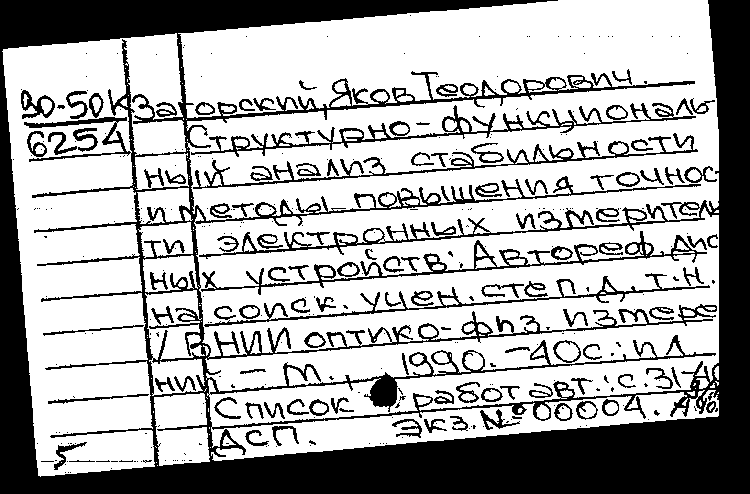 ВО-50К Загорский, Яков Теодорович.
6254 Структурно-функциональ
ный анализ стабильности
и методы повышения точнос
ти электронных измеритель
ных устройств: Автореф. дис
на соиск. учен. степ. д.т.н.
/ ВНИИ оптико-физ. измере
ний. - М., 1990. - 40с.: ил.
Список работ авт.: с. 31-40
ДСП. Экз. № 00004.
5